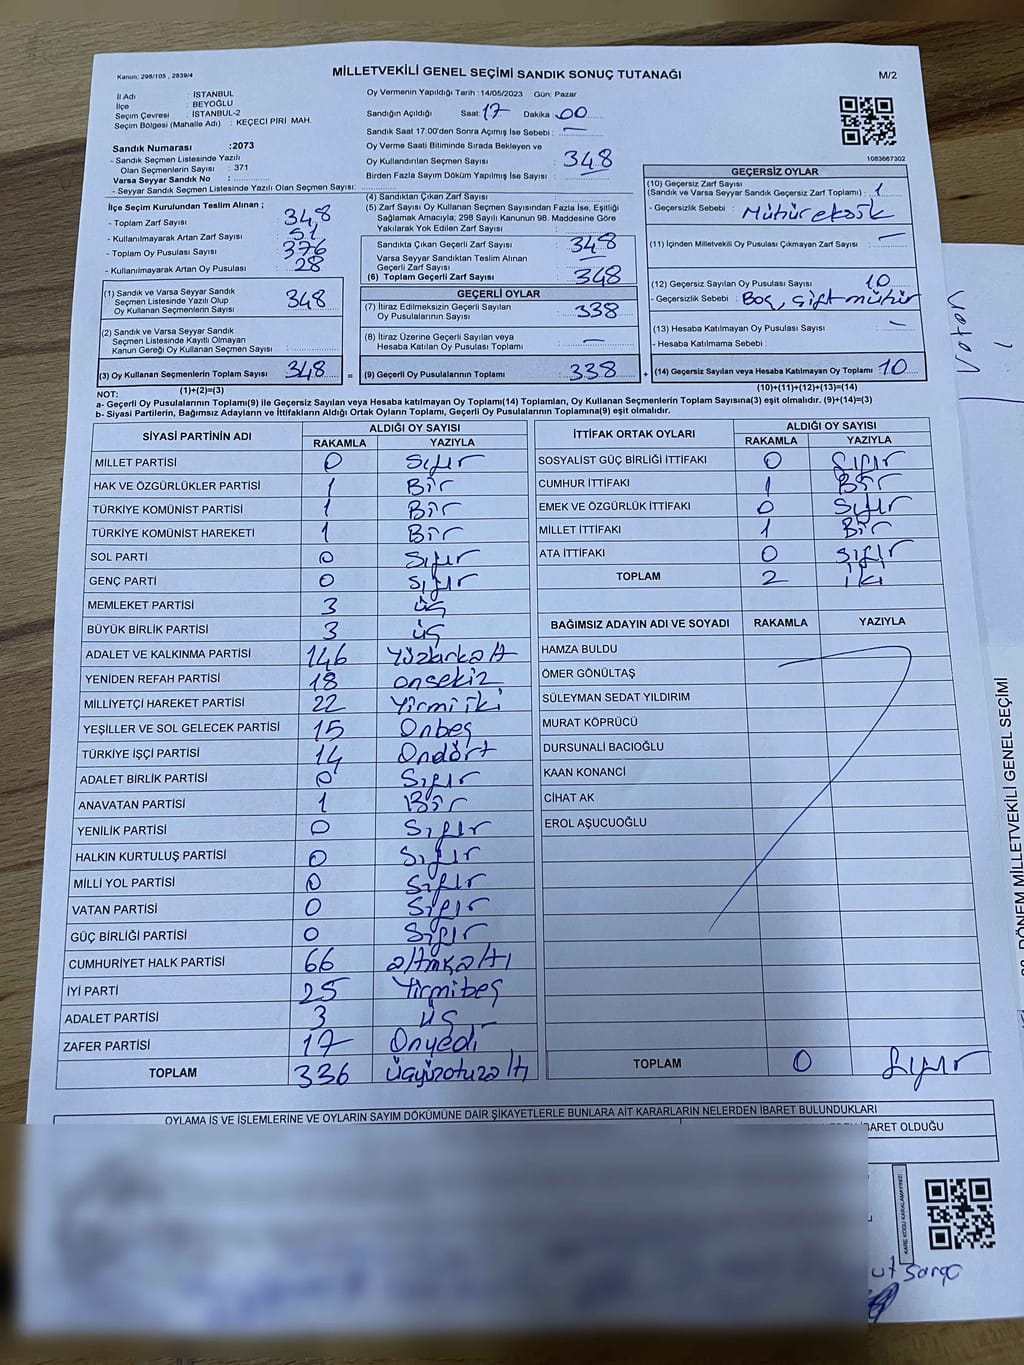 Kanun; 298/105 , 2839/4
MİLLETVEKİLİ GENEL SEÇİMİ SANDIK SONUÇ TUTANAĞI
M/2
İl Adı : İSTANBUL
İlçe : BEYOĞLU
Seçim Çevresi : İSTANBUL-2
Seçim Bölgesi (Mahalle Adı) : KEÇECİ PİRİ MAH.
Sandık Numarası :2073
- Sandık Seçmen Listesinde Yazılı
Olan Seçmenlerin Sayısı : 371
Varsa Seyyar Sandık No :
- Seyyar Sandık Seçmen Listesinde Yazılı Olan Seçmen Sayısı:
Oy Vermenin Yapıldığı Tarih :14/05/2023 Gün: Pazar
Sandığın Açıldığı Saat: 17 Dakika: 00
Sandık Saat 17.00'den Sonra Açımış İse Sebebi : —
Oy Verme Saati Bitiminde Sırada Bekleyen ve
Oy Kullandırılan Seçmen Sayısı : 348
Birden Fazla Sayım Döküm Yapılmış İse Sayısı :
1083667302
İlçe Seçim Kurulundan Teslim Alınan ;
- Toplam Zarf Sayısı : 348
- Kullanılmayarak Artan Zarf Sayısı : 51
- Toplam Oy Pusulası Sayısı : 376
- Kullanılmayarak Artan Oy Pusulası : 28
(1) Sandık ve Varsa Seyyar Sandık
Seçmen Listesinde Yazılı Olup
Oy Kullanan Seçmenlerin Sayısı : 348
(2) Sandık ve Varsa Seyyar Sandık
Seçmen Listesinde Kayıtlı Olmayan
Kanun Gereği Oy Kullanan Seçmen Sayısı :
(3) Oy Kullanan Seçmenlerin Toplam Sayısı : 348
(1)+(2)=(3)
(4) Sandıktan Çıkan Zarf Sayısı :
(5) Zarf Sayısı Oy Kullanan Seçmen Sayısından Fazla İse, Eşitliği
Sağlamak Amacıyla; 298 Sayılı Kanunun 98. Maddesine Göre
Yakılarak Yok Edilen Zarf Sayısı :
Sandıkta Çıkan Geçerli Zarf Sayısı : 348
Varsa Seyyar Sandıktan Teslim Alınan
Geçerli Zarf Sayısı :
(6) Toplam Geçerli Zarf Sayısı : 348
GEÇERLİ OYLAR
(7) İtiraz Edilmeksizin Geçerli Sayılan
Oy Pusulalarının Sayısı : 338
(8) İtiraz Üzerine Geçerli Sayılan veya
Hesaba Katılan Oy Pusulası Toplamı : —
= (9) Gelerli Oy Pusulalarının Toplamı : 338
GEÇERSİZ OYLAR
(10) Geçersiz Zarf Sayısı
(Sandık ve Varsa Seyyar Sandık Geçersiz Zarf Toplamı) : 1
- Geçersizlik Sebebi : Mühür eksik
(11) İçinden Milletvekili Oy Pusulası Çıkmayan Zarf Sayısı : —
(12) Geçersiz Sayılan Oy Pusulası Sayısı : 10
- Geçersizlik Sebebi : Boş, çift mühür
(13) Hesaba Katılmayan Oy Pusulası Sayısı : —
- Hesaba Katılmama Sebebi :
+ (14) Geçersiz Sayılan veya Hesaba Katılmayan Oy Toplamı 10
(10)+(11)+(12)+(13)=(14)
NOT:
a- Geçerli Oy Pusulalarının Toplamı(9) ile Geçersiz Sayılan veya Hesaba Katılmayan Oy Toplamı(14) Toplamları, Oy Kullanan Seçmenlerin Toplam Sayısına(3) eşit olmalıdır. (9)+(14)=(3)
b- Siyasi Partilerin, Bağımsız Adayların ve İttifakların Aldığı Ortak Oyların Toplamı, Geçerli Oy Pusulalarının Toplamına(9) eşit olmalıdır.
SİYASİ PARTİNİN ADI ALDIĞI OY SAYISI
RAKAMLA YAZIYLA
MİLLET PARTİSİ 0 Sıfır
HAK VE ÖZGÜRLÜKLER PARTİSİ 1 Bir
TÜRKİYE KOMÜNİST PARTİSİ 1 Bir
TÜRKİYE KOMÜNİST HAREKETİ 1 Bir
SOL PARTİ 0 Sıfır
GENÇ PARTİ 0 Sıfır
MEMLEKET PARTİSİ 3 üç
BÜYÜK BİRLİK PARTİSİ 3 üç
ADALET VE KALKINMA PARTİSİ 146 Yüzkırkaltı
YENİDEN REFAH PARTİSİ 18 onsekiz
MİLLİYETÇİ HAREKET PARTİSİ 22 Yirmiiki
YEŞİLLER VE SOL GELECEK PARTİSİ 15 Onbeş
TÜRKİYE İŞÇİ PARTİSİ 14 Ondört
ADALET BİRLİK PARTİSİ 0 Sıfır
ANAVATAN PARTİSİ 1 Bir
YENİLİK PARTİSİ 0 Sıfır
HALKIN KURTULUŞ PARTİSİ 0 Sıfır
MİLLİ YOL PARTİSİ 0 Sıfır
VATAN PARTİSİ 0 Sıfır
GÜÇ BİRLİĞİ PARTİSİ 0 Sıfır
CUMHURİYET HALK PARTİSİ 66 altmışaltı
İYİ PARTİ 25 Yirmibeş
ADALET PARTİSİ 3 üç
ZAFER PARTİSİ 17 Onyedi
TOPLAM 336 üçyüzotuzaltı
İTTİFAK ORTAK OYLARI ALDIĞI OY SAYISI
RAKAMLA YAZIYLA
SOSYALİST GÜÇ BİRLİĞİ İTTİFAKI 0 Sıfır
CUMHUR İTTİFAKI 1 Bir
EMEK VE ÖZGÜRLÜK İTTİFAKI 0 Sıfır
MİLLET İTTİFAKI 1 Bir
ATA İTTİFAKI 0 Sıfır
TOPLAM 2 iki
BAĞIMSIZ ADAYIN ADI VE SOYADI RAKAMLA YAZIYLA
HAMZA BULDU
ÖMER GÖNÜLTAŞ
SÜLEYMAN SEDAT YILDIRIM
MURAT KÖPRÜCÜ
DURSUNALİ BACIOĞLU
KAAN KONANCİ
CİHAT AK
EROL AŞUCUOĞLU
TOPLAM 0 Sıfır
OYLAMA İŞ VE İŞLEMLERİNE VE OYLARIN SAYIM DÖKÜMÜNE DAİR ŞİKAYETLERLE BUNLARA AİT KARARLARIN NELERDEN İBARET BULUNDUKLARI
İBARET OLDUĞU
KARE KODU KARALAMAYINIZ!
DÖNEM MİLLETVEKİLİ GENEL SEÇİMİ